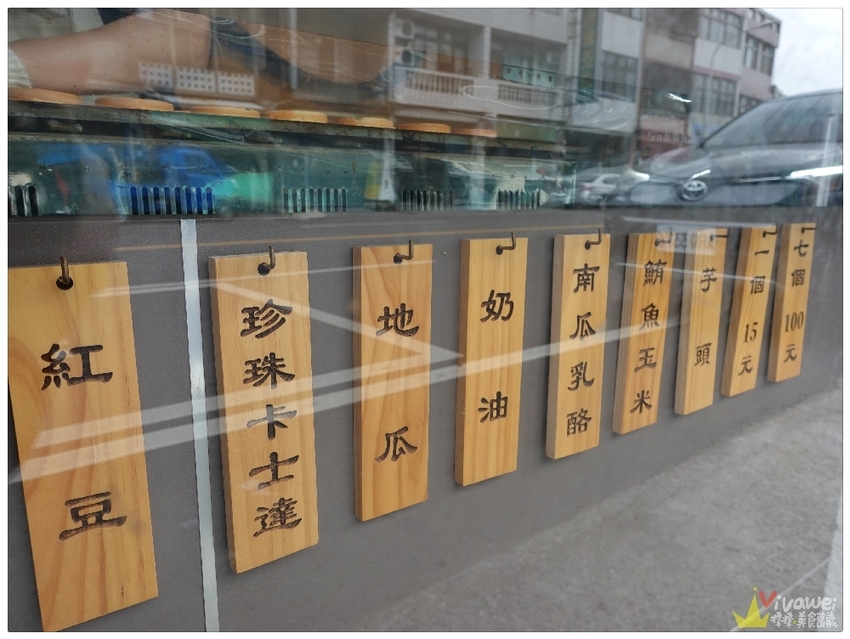 紅豆
珍珠卡士達
地瓜
奶油
南瓜乳酪
鮪魚玉米
芋頭
一個15元
七個100元
Vivawei